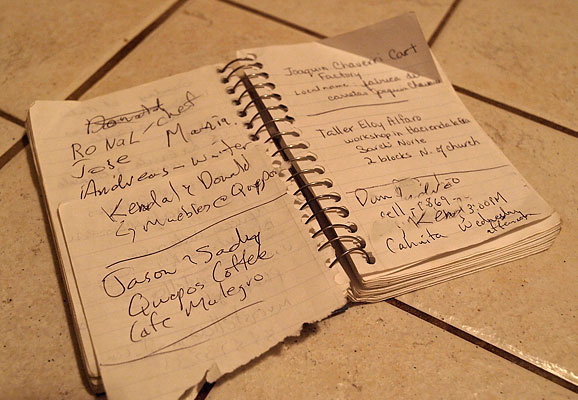 Donald
RONAL/Chef
Jose Maria
Andreas - Waiter
Kendal & Donald
Muebles @ Quepos
Jason & Sady
Quepos Coffee
Cafe Malegro
Joaquin Chaverri Cart
Factory
Local name fabrica de
carretas Joaquin Chaverri
Taller Eloy Alfaro
workshop in Hacienda
Sarchi Norte
2 blocks N. of church
Dan
cell 869
3:00PM
Cahuita Wednesday